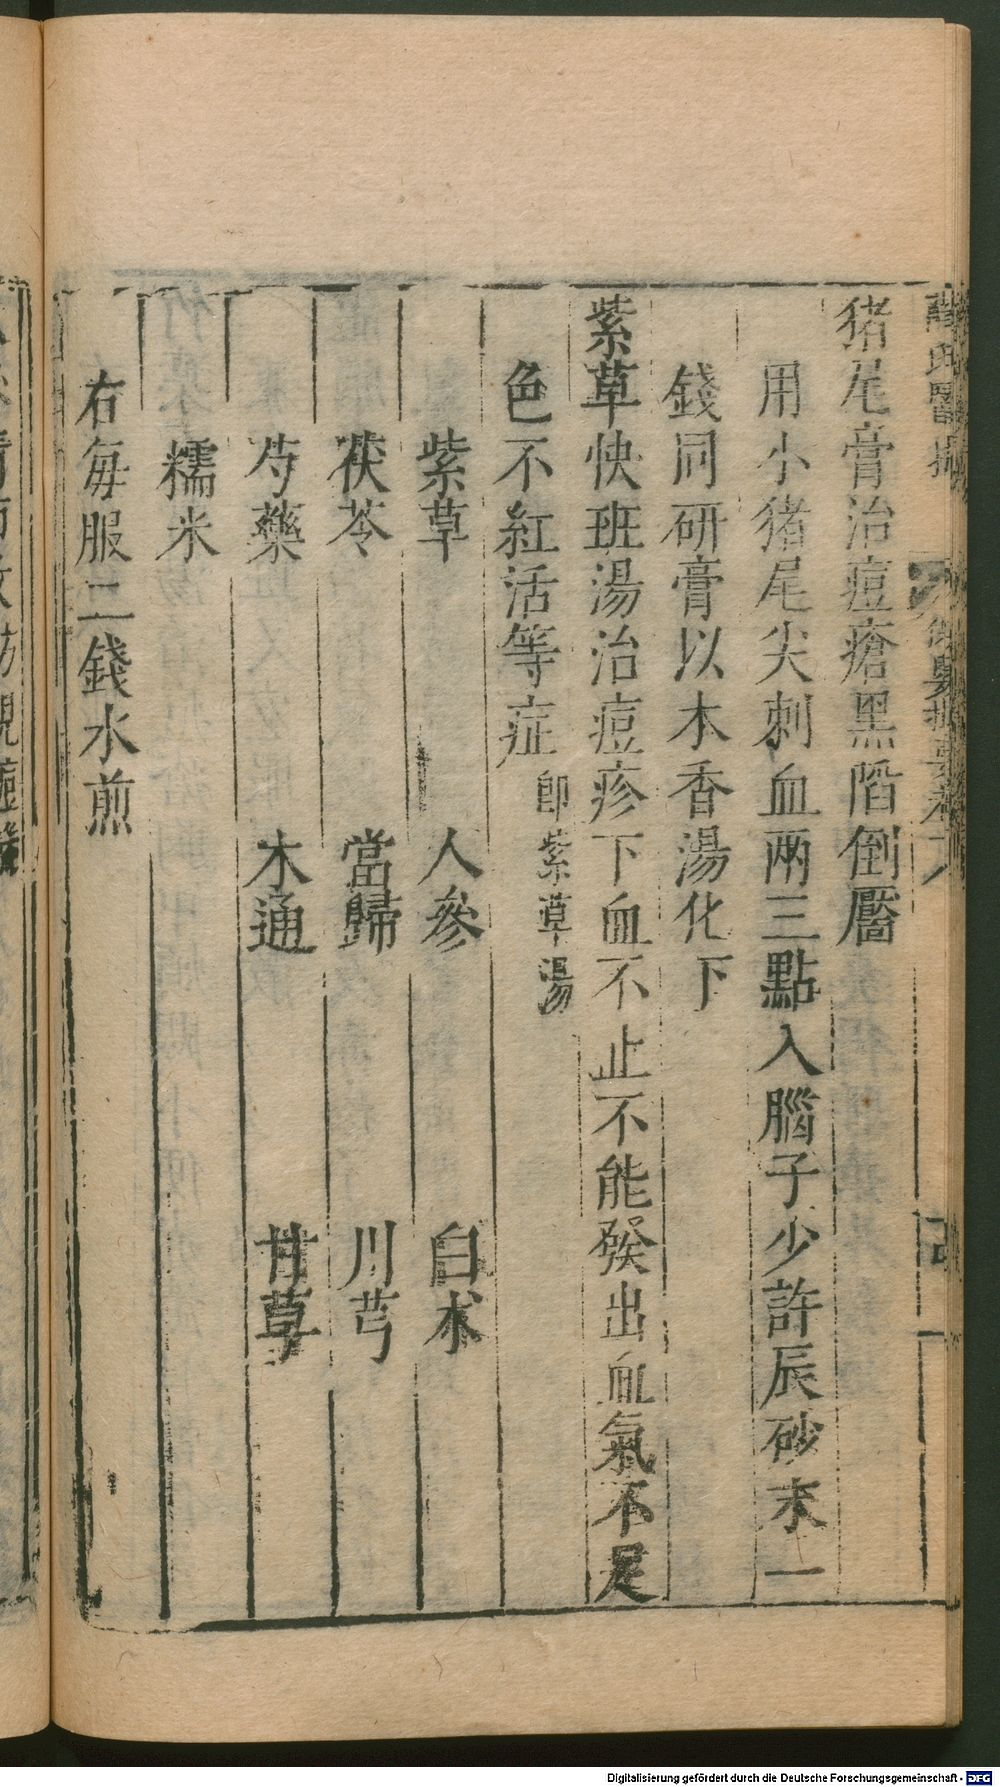 猪尾膏治痘瘡黑陷倒靨
用小猪尾尖刺血兩三點入腦子少許辰砂末一
錢同研膏以木香湯化下
紫草快班湯治痘疹下血不止不能發出血氣不足
色不紅活等症 卽紫草湯
紫草 人參 白朮
茯苓 當歸 川芎
芍藥 木通 甘草
糯米
右每服二錢水煎
Digitalisierung gefördert durch die Deutsche Forschungsgemeinschaft - DFG